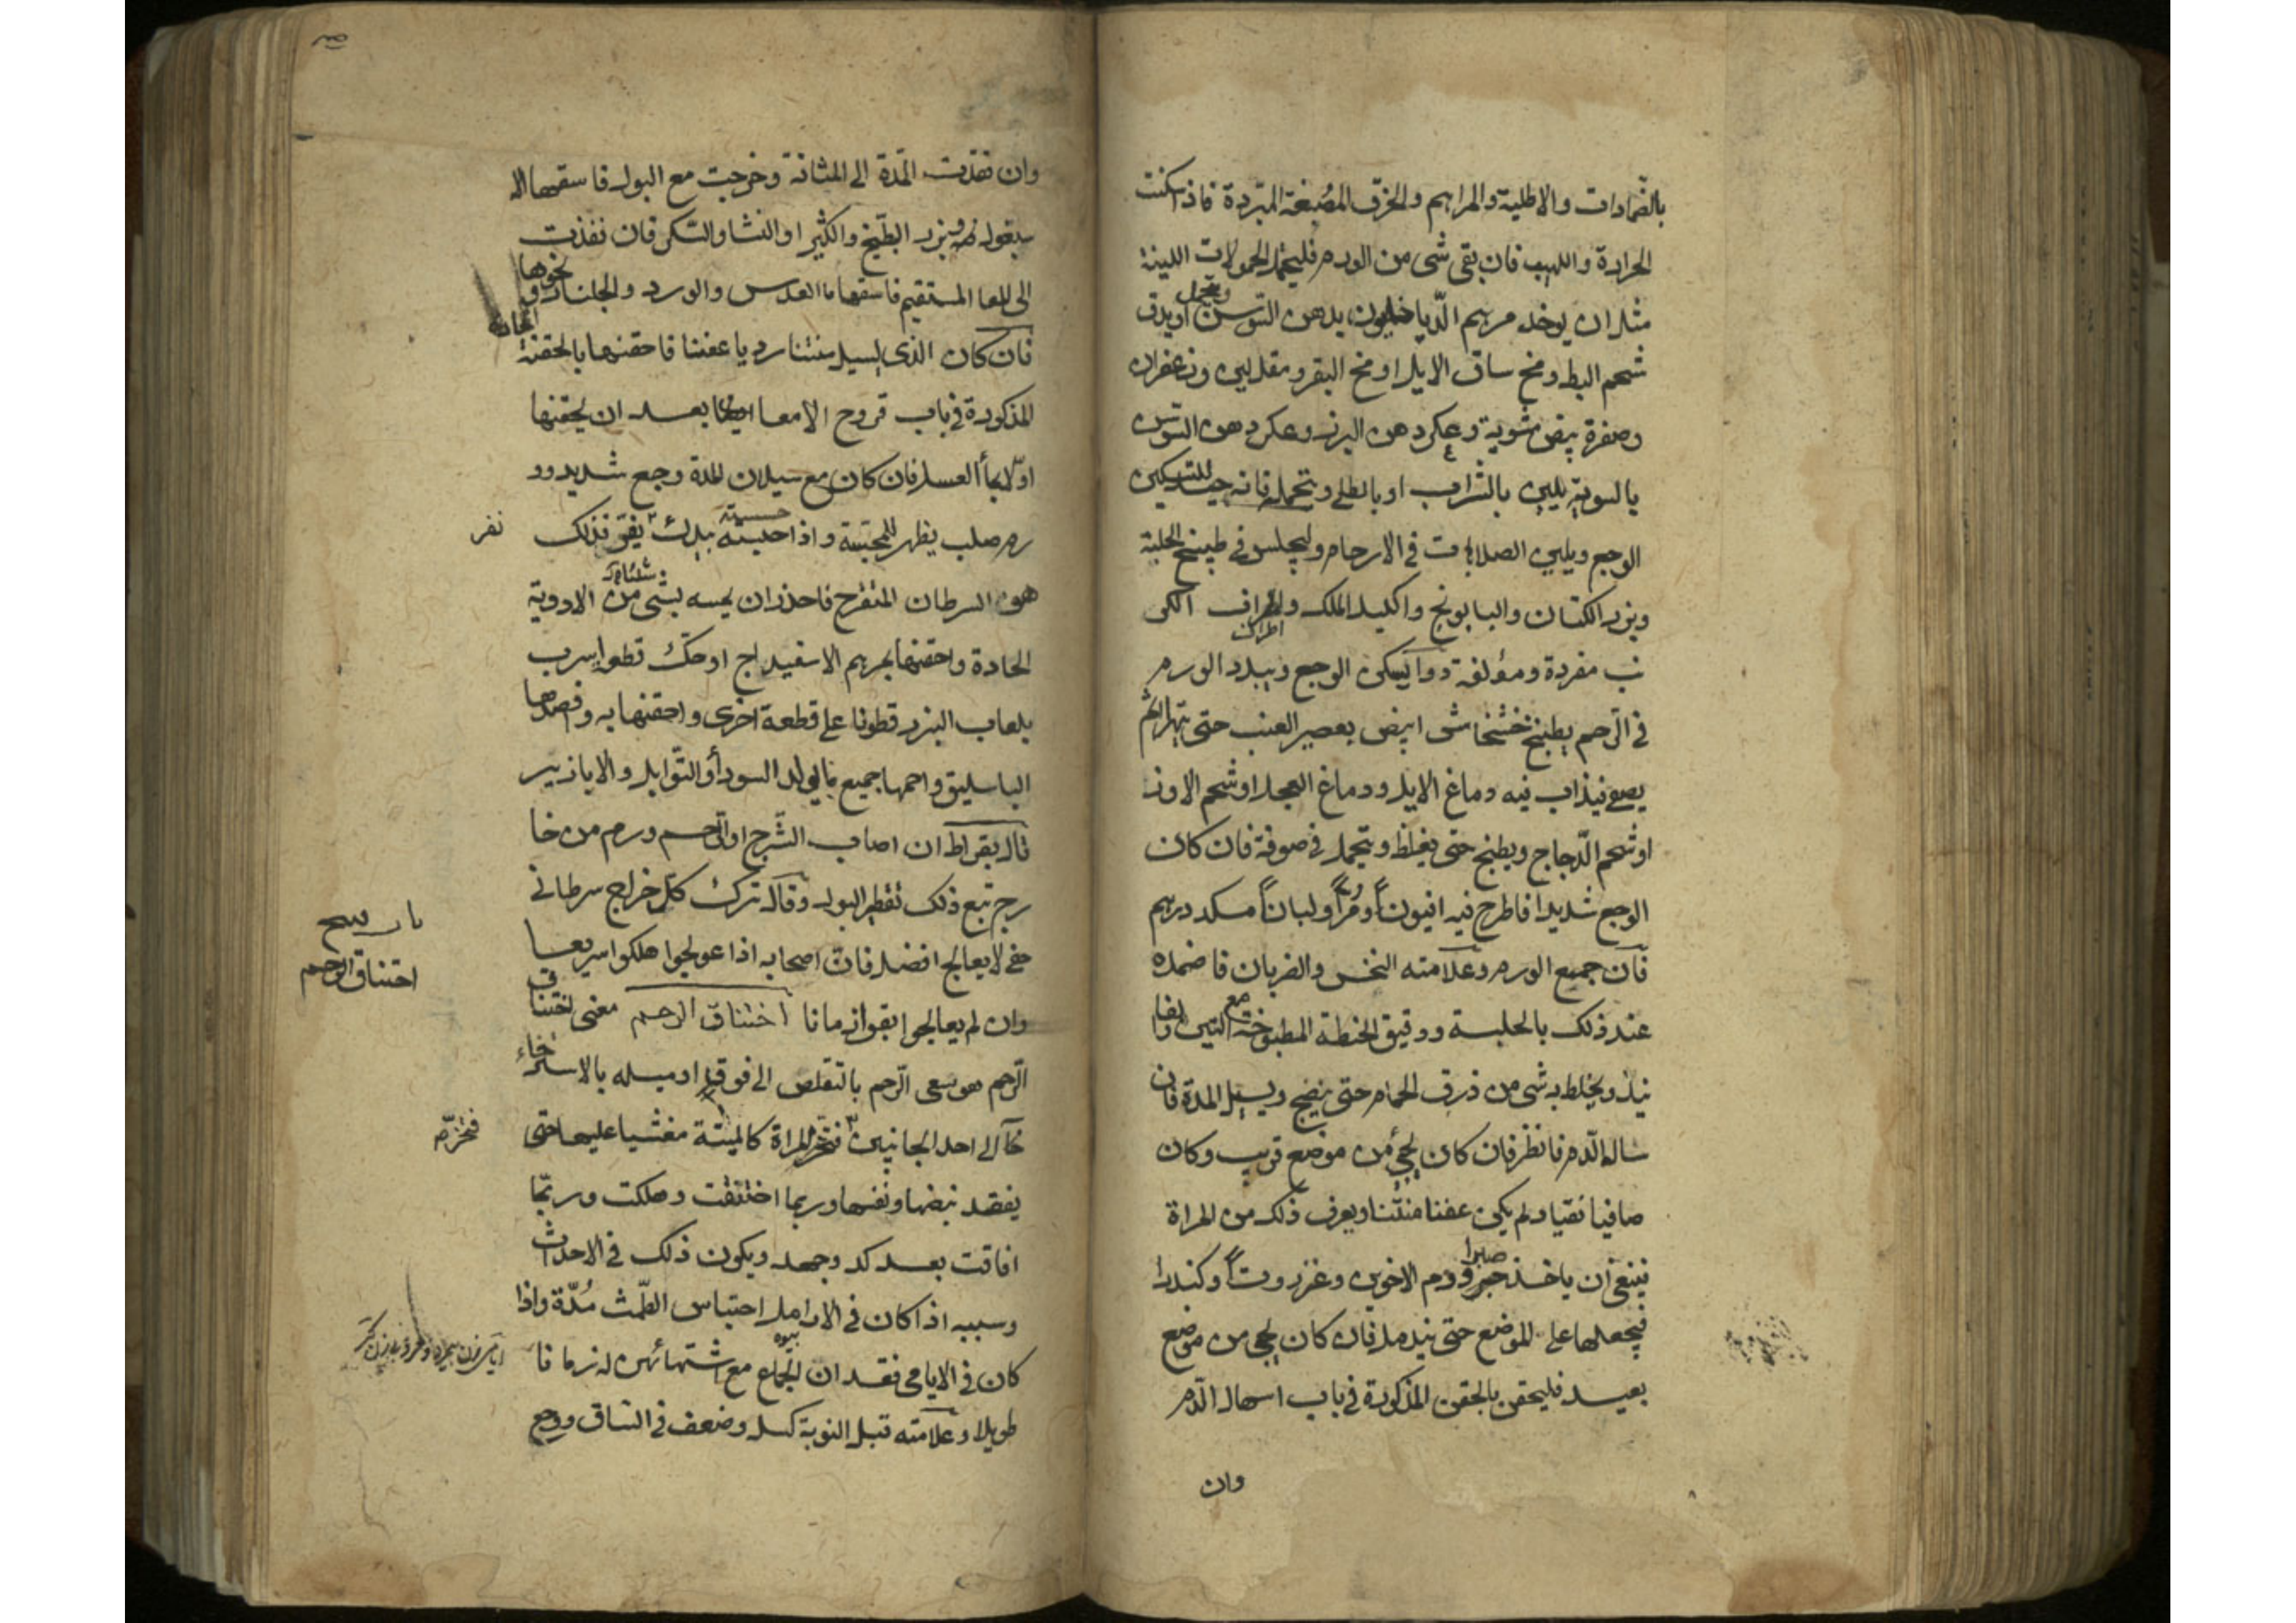 بالضمادات والاطلية والمراهم والخرق المصبغة المبردة فاذا سكنت
الحرارة واللهيب فان بقى شى من الورم فليتحمل الحمولات اللينة
مثل ان يوخذ مرهم الدياخليون بدهن السوسن ويتحمل او يدق
شحم البط ومخ ساق الايل او مخ البقر ومقل لين وزعفران
وصفرة بيض مشوية وعكر دهن البزر وعكر دهن السوسن
بالسوية يلين بالشراب او بالطلى ويتحمله فانه جيد لتسكين
الوجع ويلين الصلابات فى الارحام وليجلس فى طبيخ الحلبة
وبزر الكتان والبابونج واكليل الملك واطراف الكر
اطراف
نب مفردة ومؤلفة دوآ يسكن الوجع ويبدد الورم
فى الرحم يطبخ خشخاش ابيض بعصير العنب حتى يتهرا ثم
يصفى فيذاب فيه دماغ الايل ودماغ العجل او شحم الاوز
او شحم الدجاج ويطبخ حتى يغلظ ويتحمل فى صوفة فان كان
الوجع شديدا فاطرح فيه افيوناً ومُراً ولباناً مسكد درهم
فان جمع الورم وعلامته النخس والضربان فاضمده
عند ذلك بالحلبة ودقيق الحنطة المطبوخة مع التين والفا
نيذ ويخلط به شى من ذرق الحمام حتى ينضج ويسيل المدة فان
سال الدم فانظر فان كان يجىء من موضع قريب وكان
صافيا نقيا ولم يكن عفنا منتنا ويعرف ذلك من المراة
فينبغى ان ياخذ صبرا ودم الاخوين وعنزروتاً وكندرا
فيجعلها على الموضع حتى يندمل فان كان يجى من موضع
بعيد فليحقن بالحقن المذكورة فى باب اسهال الدم
وان
وان نفذت المدة الى المثانة وخرجت مع البول فاسقها الا
بيقوله وبزر البطيخ والكثيرا والنشا والسكر فان نفذت
الى المعا المستقيم فاسقها ماا العدس والورد والجلنار ونحوها
فان كان الذى يسيل منتنا رديا عفنا فاحقنها بالحقنة
المذكورة فى باب قروح الامعا ايضا بعد ان يحقنها
اولا بمأ العسل فان كان مع سيلان المدة وجع شديد وو
رم صلب يظهر للمجسة واذا جسسته بيدك نفر فذلك
نفر
هو السرطان المتقرح فاحذر ان يمسه بشى من الادوية
الحادة واحقنها بمرهم الاسفيداج او حك قطعة اسرب
بلعاب البزر قطونا على قطعة اخرى واحقنها به وافصدها
الباسليق واحمها جميع ما يولد السودأ والتوابل والابازير
قال بقراط ان اصاب الشرج او الرحم ورم من خا
رج تبع ذلك تقطير البول وقال ترك كل خراج سرطانى
خفى لا يعالج افضل فان اصحابه اذا عولجوا هلكوا سريعا
وان لم يعالجوا بقوا زمانا اختناق الرحم معنى اختناق
اختناق الرحم
الرحم هو سعى الرحم بالتقلص الى فوق او ميله بالاسترخاء
الى احد الجانبين فتخر المراة كالميتة مغشيا عليها حتى
يفقد نبضها ونفسها وربما اختنقت وهلكت وربما
افاقت بعد كد وجهد ويكون ذلك فى الاحداث
وسببه اذا كان فى الارامل احتباس الطمث مُدة واذا
كان فى الايامى فقدان الجماع مع اشتهائهن له زمانا
طويلا وعلامته قبل النوبة كسل وضعف فى الساق ووجع